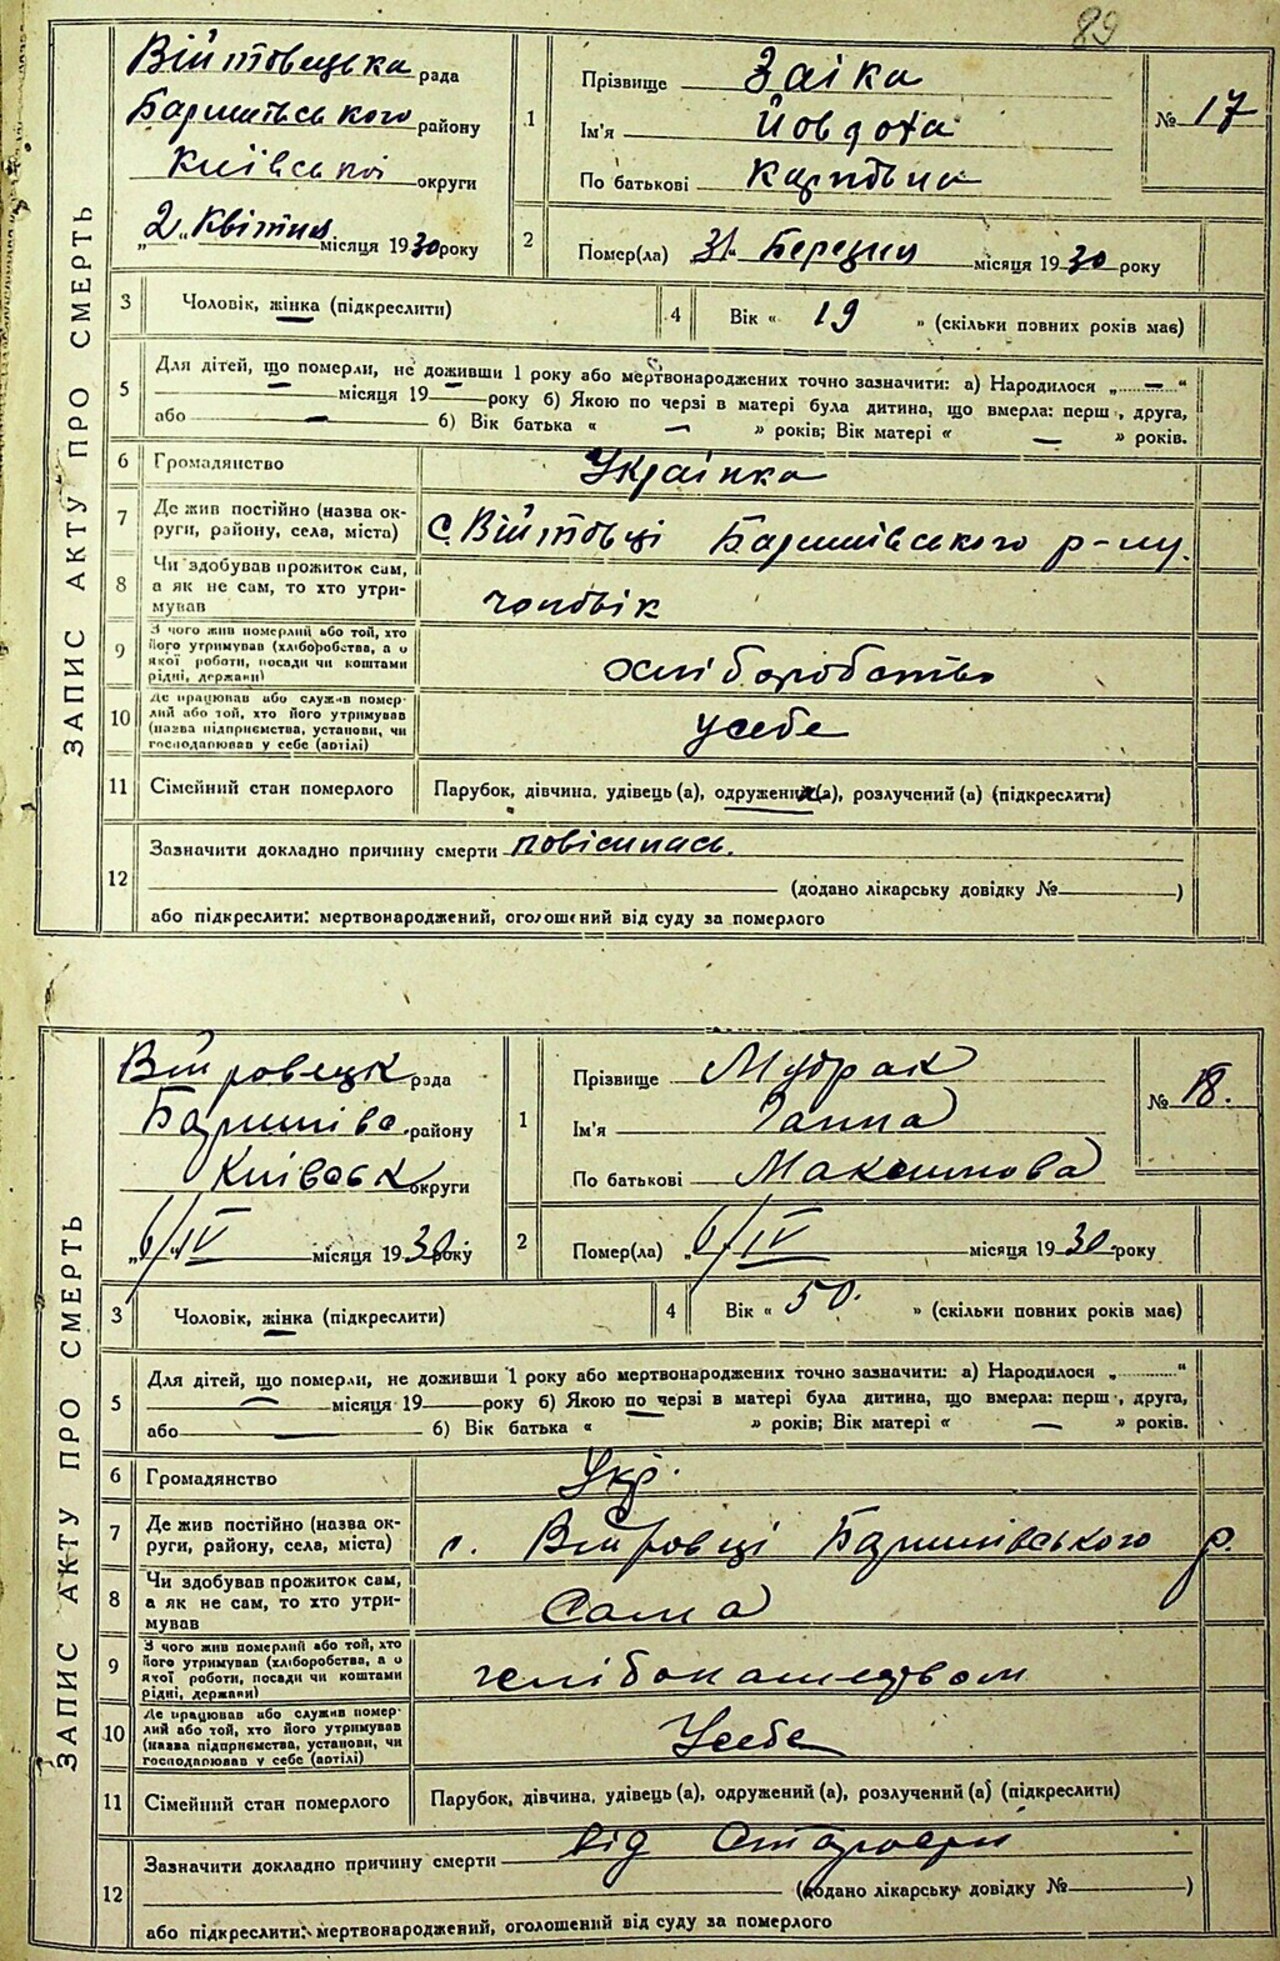 89
ЗАПИС АКТУ ПРО СМЕРТЬ
Війтовецька рада
Баришівського району
Київської округи
„2" Квітня місяця 1930 року
1
Прізвище Заіка
Ім'я Йовдоха
По батькові Карповна
№ 17
2
Помер(ла) 31" Березня місяця 1930 року
3 Чоловік, жінка (підкреслити)
4 Вік « 19 » (скільки повних років має)
5 Для дітей, що померли, не доживши 1 року або мертвонароджених точно зазначити: а) Народилося „ — "
місяця 19 — року б) Якою по черзі в матері була дитина, що вмерла: перш , друга,
або — б) Вік батька « — » років; Вік матері « — » років.
6 Громадянство Українка
7 Де жив постійно (назва ок-
руги, району, села, міста) с. Війтовці Баришівського р-ну.
8 Чи здобував прожиток сам,
а як не сам, то хто утри-
мував чоловік
9 З чого жив померлий або той, хто
його утримував (хліборобства, а о
якої роботи, посади чи коштами
рідні, держави) хліборобство
10 Де працював або служив помер-
лий або той, хто його утримував
(назва підприємства, установи, чи
господарював у себе (артілі) усебе
11 Сімейний стан померлого Парубок, дівчина, удівець (а), одружений (а), розлучений (а) (підкреслити)
12 Зазначити докладно причину смерти повісилась.
(додано лікарську довідку № )
або підкреслити: мертвонароджений, оголошений від суду за померлого
ЗАПИС АКТУ ПРО СМЕРТЬ
рада
Баришівс. району
Київськ округи
„6/IV місяця 1930 року
1
Прізвище Мудрак
Ім'я Ганна
По батькові Максимова
№ 18.
2
Помер(ла) „6/IV місяця 1930 року
3 Чоловік, жінка (підкреслити)
4 Вік « 50. » (скільки повних років має)
5 Для дітей, що померли, не доживши 1 року або мертвонароджених точно зазначити: а) Народилося „ "
— місяця 19 року б) Якою по черзі в матері була дитина, що вмерла: перш , друга,
або — б) Вік батька « » років; Вік матері « — » років.
6 Громадянство Укр.
7 Де жив постійно (назва ок-
руги, району, села, міста) с. Баришівського р.
8 Чи здобував прожиток сам,
а як не сам, то хто утри-
мував Сама
9 З чого жив померлий або той, хто
його утримував (хліборобства, а о
якої роботи, посади чи коштами
рідні, держави)
10 Де працював або служив помер-
лий або той, хто його утримував
(назва підприємства, установи, чи
господарював у себе (артілі) Усебе
11 Сімейний стан померлого Парубок, дівчина, удівець (а), одружений (а), розлучений (а) (підкреслити)
12 Зазначити докладно причину смерти від
(додано лікарську довідку № )
або підкреслити: мертвонароджений, оголошений від суду за померлого